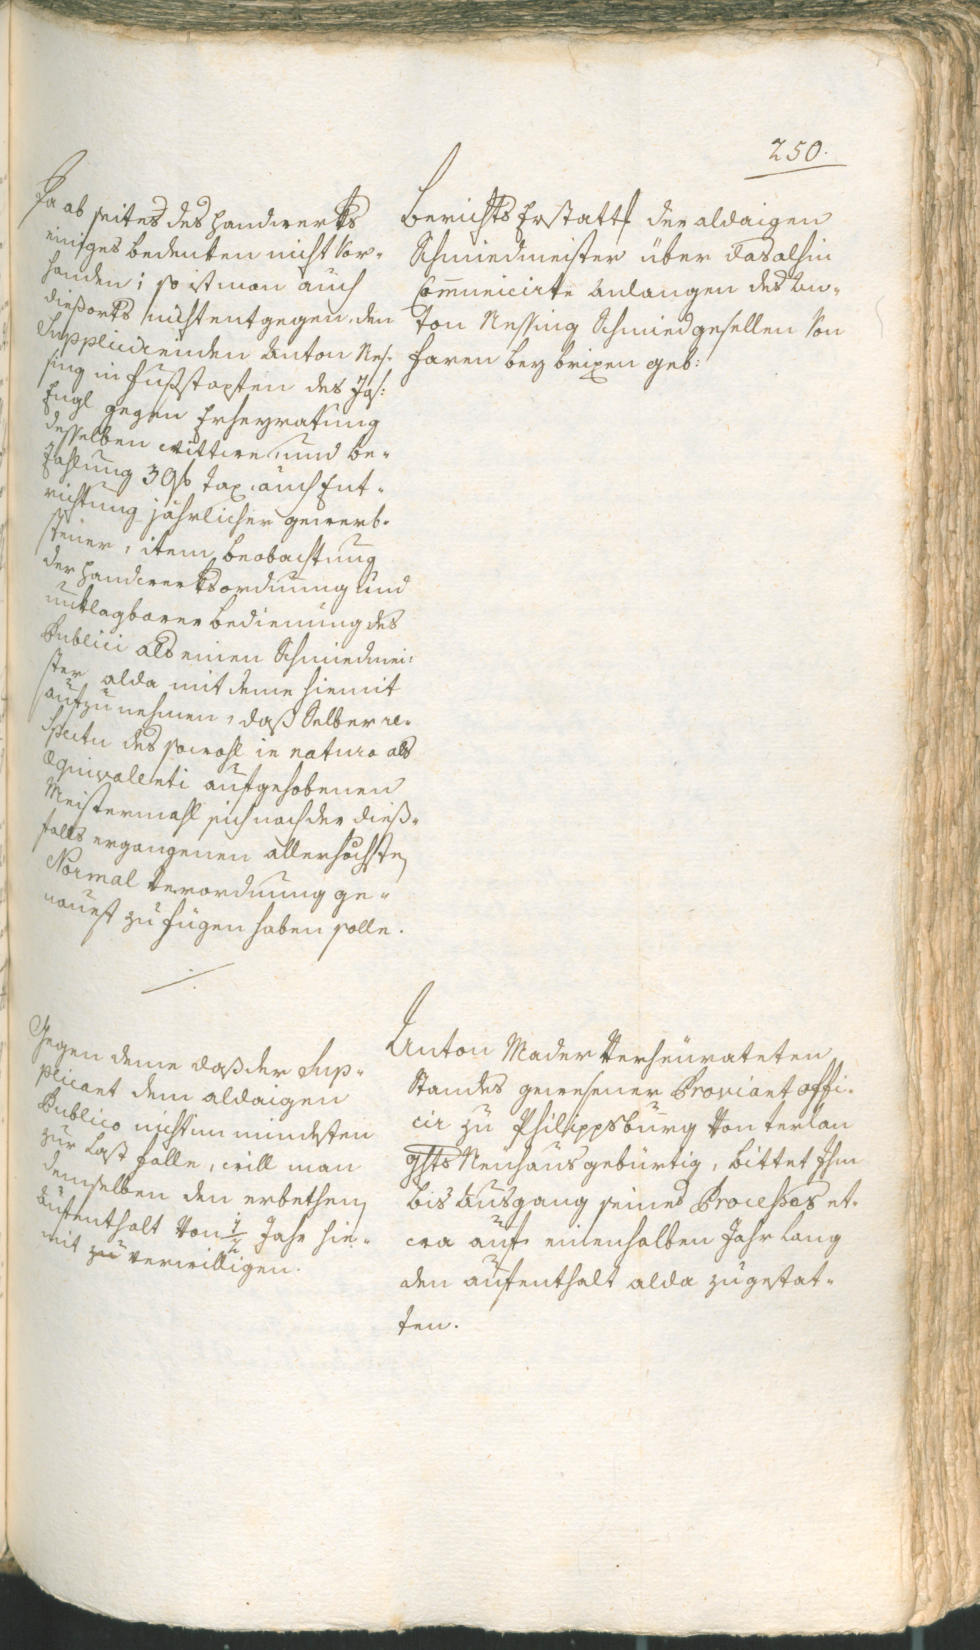 250.
Da ab seites des Handwerks
einiges bedenken nicht Vor-
handen; so ist man auch
dießorts nicht entgegen, den
Supplicirenden Anton Nes-
sing in fußstapfen des Jos:
Engl gegen Erheyratung
desselben wittwe, und be-
zahlung 30 fl tax, auch Ent-
richtung jährlicher gewerb-
steuer, item beobachtung
der Handwerksordnung und
unklagbarer bedienung des
Publici als einen Schmiedmei-
ster alda mit deme hiemit
aufzunehmen, daß Selber re-
spectu des sowohl in natura als
Equivalenti aufgehobenen
Meistermahl sich nach der dieß-
falls ergangenen allerhöchsten
Normal Verordnung ge-
nauest zu fügen haben solle.
Berichts Erstattung der aldaigen
Schmiedmeister über das alhin
Communicirte Anlangen des An-
ton Nessing Schmiedgesellen Von
faren bey brixen geb:
Gegen deme daß der Sup-
plicant dem aldaigen
Publico nicht im mindesten
zur Last falle, will man
demselben den erbethenen
Aufenthalt Von 1/2 Jahr hie-
mit zu verwilligen.
Anton Mader Verheurateten
Standes gewesener Proviant offi-
cir zu Philippsburg Von terlan
ghts Neuhaus gebürtig, bittet Ihm
bis Ausgang seines Processes et-
wa auf einen halben Jahr Lang
den aufenthalt alda zu gestat-
ten.